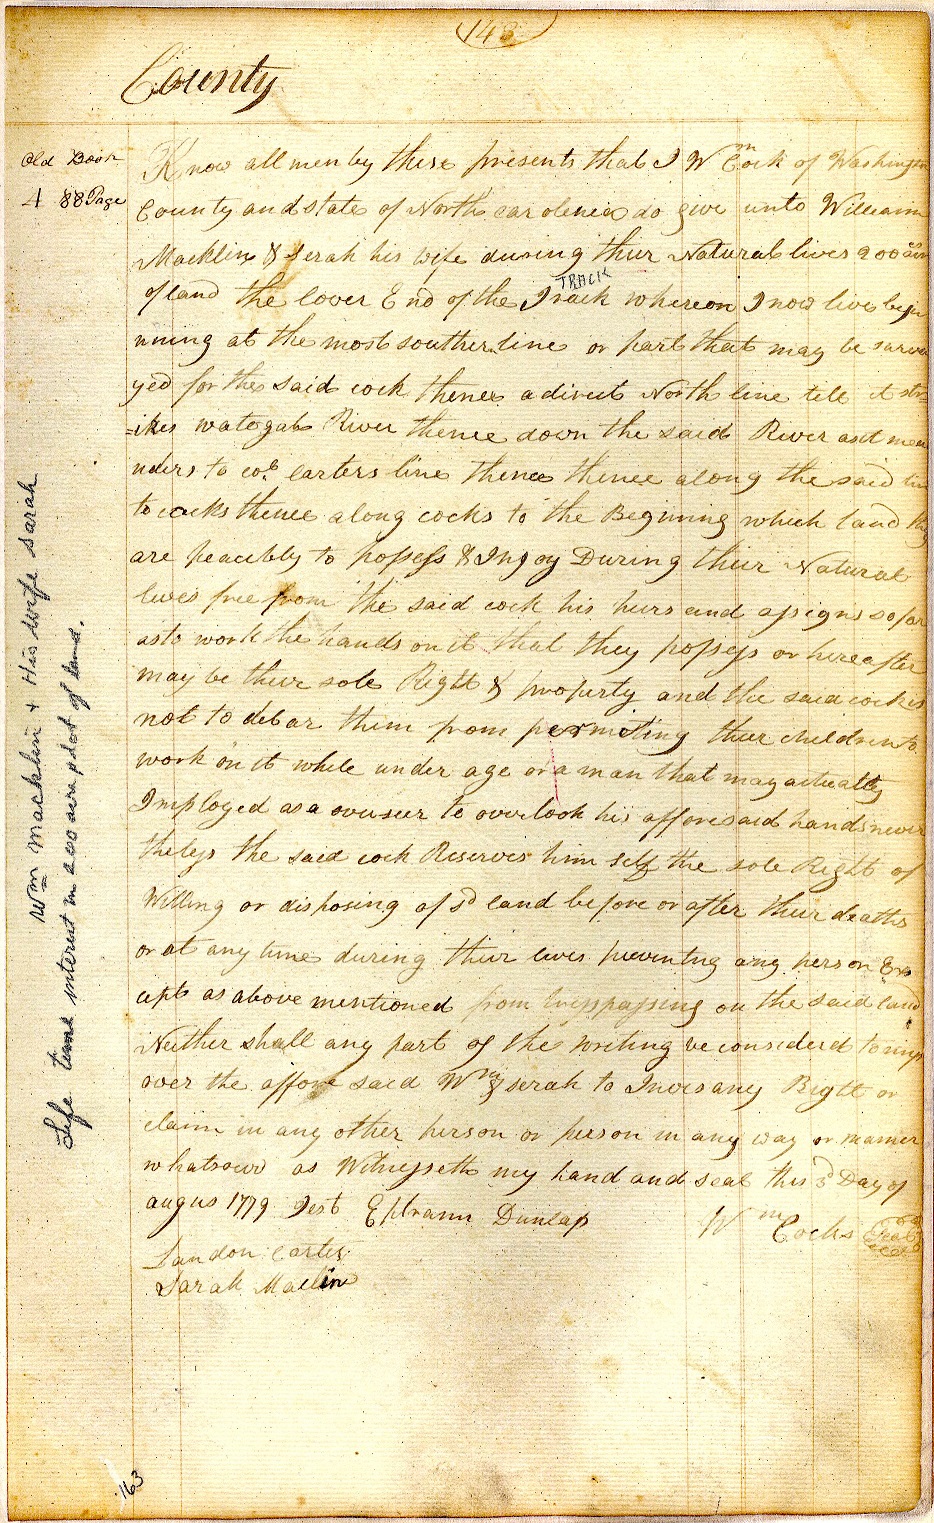 148
County
Old Book
4 88 Page
Know all men by these presents that I Wm Cock of Washington
County and state of North carolenia do give unto William
Macklin & Serah his wife during thur Natural lives 200
TRACK
of land the lover End of the Track whereon I now live begi
nning at the most southern line or part that may be sarva
yed for the said cock thence a direct North line tell it str=
=ikes watogah River thence down the said River as it mea
nders to col. carters line thence thence along the said lin
to cocks thence along cocks to the Beginning which land they
are peacibly to possess & Injoy During their Natural
lives free from the said cock his heirs and assigns so far
as to work the hands on it that they possess or hereafter
may be their sole Right & property and the said cock is
not to debar them from permitting their children to
work on it while under age or a man that may actually
Imployed as a overseer to overlook his afforesaid hands never
theless the said cock Reserves him self the sole Right of
Willing or disposing of sd land before or after their deaths
or at any time during their lives preventing any person Exs
cept as above mentioned from tresspassing on the said land
Neither shall any part of the writing be considerd to
over the affore said Wm & serah to any Right or
claim in any other person or person in any way or manner
whatsoever as Witnesseth my hand and seal this 3d Day of
augus 1779 Test Ephraim Dunlap
Wm Cocks Seal
Landon Carter
Sarah Maclin
Wm Macklin + His wife Sarah
Life time interest in 200 acre plot of land.
163